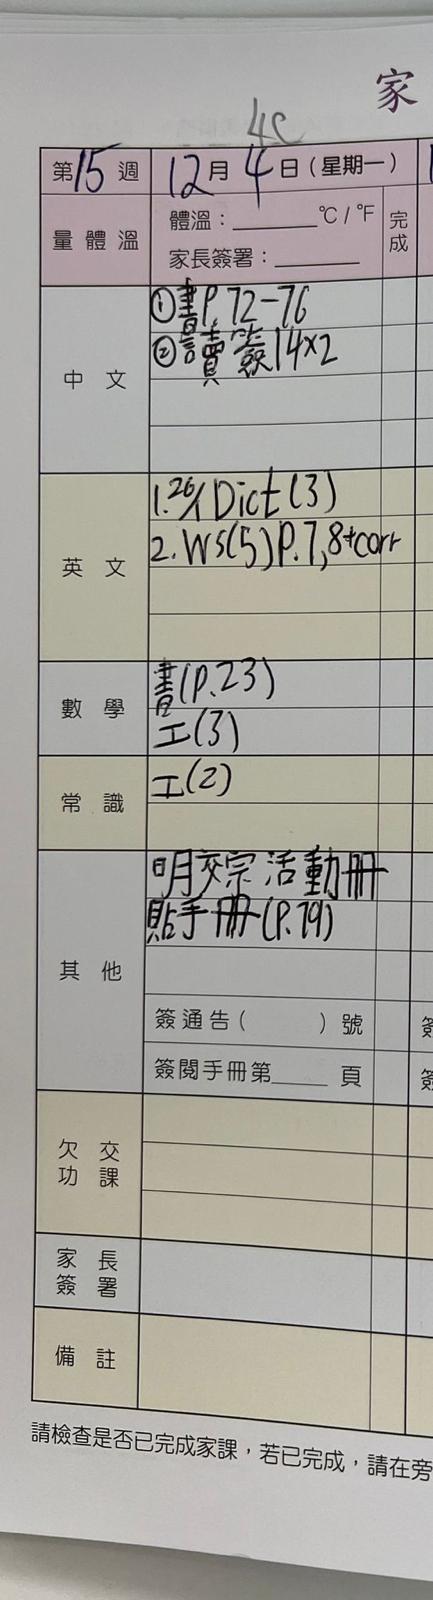 家
4C
第15週 12月4日(星期一)
量體溫 體溫：______°C/°F 完成
家長簽署：______
中文
①書P.72-76
②讀簽14×2
英文
1.26/1 Dict(3)
2.WS(5)P.7,8+corr
數學
書(P.23)
工(3)
常識
工(2)
其他
明交宗活動冊
貼手冊(P.79)
簽通告( )號
簽閱手冊第____頁
欠交功課
家長簽署
備註
請檢查是否已完成家課，若已完成，請在旁